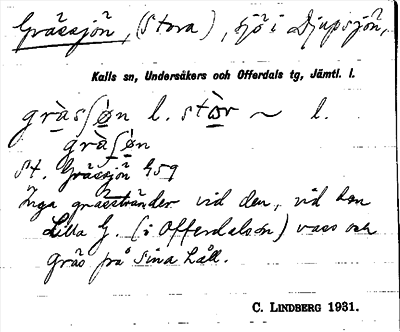 Grässjön, (Stora), sjö i Djupsjön,
Kalls sn, Undersåkers och Offerdals tg, Jämtl. l.
gràsʃøn l. stòr ~ l.
gràʃøn
St. Grässjön 459
Inga grässtränder vid den, vid den
Lilla G. (i Offerdals sn) vass och
gräs på sina håll.
C. LINDBERG 1931.